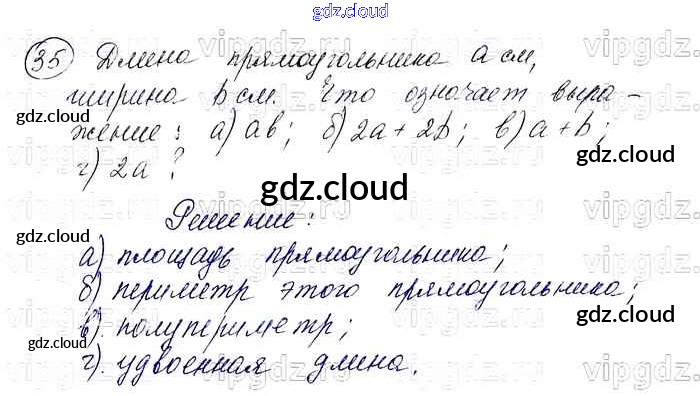 gdz.cloud
35 Длина прямоугольника а см,
ширина b см. Что означает выра-
жение: а) ab; б) 2a + 2b; в) a + b;
г) 2а ?
gdz.cloud
gdz.cloud
gdz.cloud
Решение:
gdz.cloud
а) площадь прямоугольника;
б) периметр этого прямоугольника;
в). полупериметр;
gdz.cloud
gdz.cloud
г). удвоенная длина.